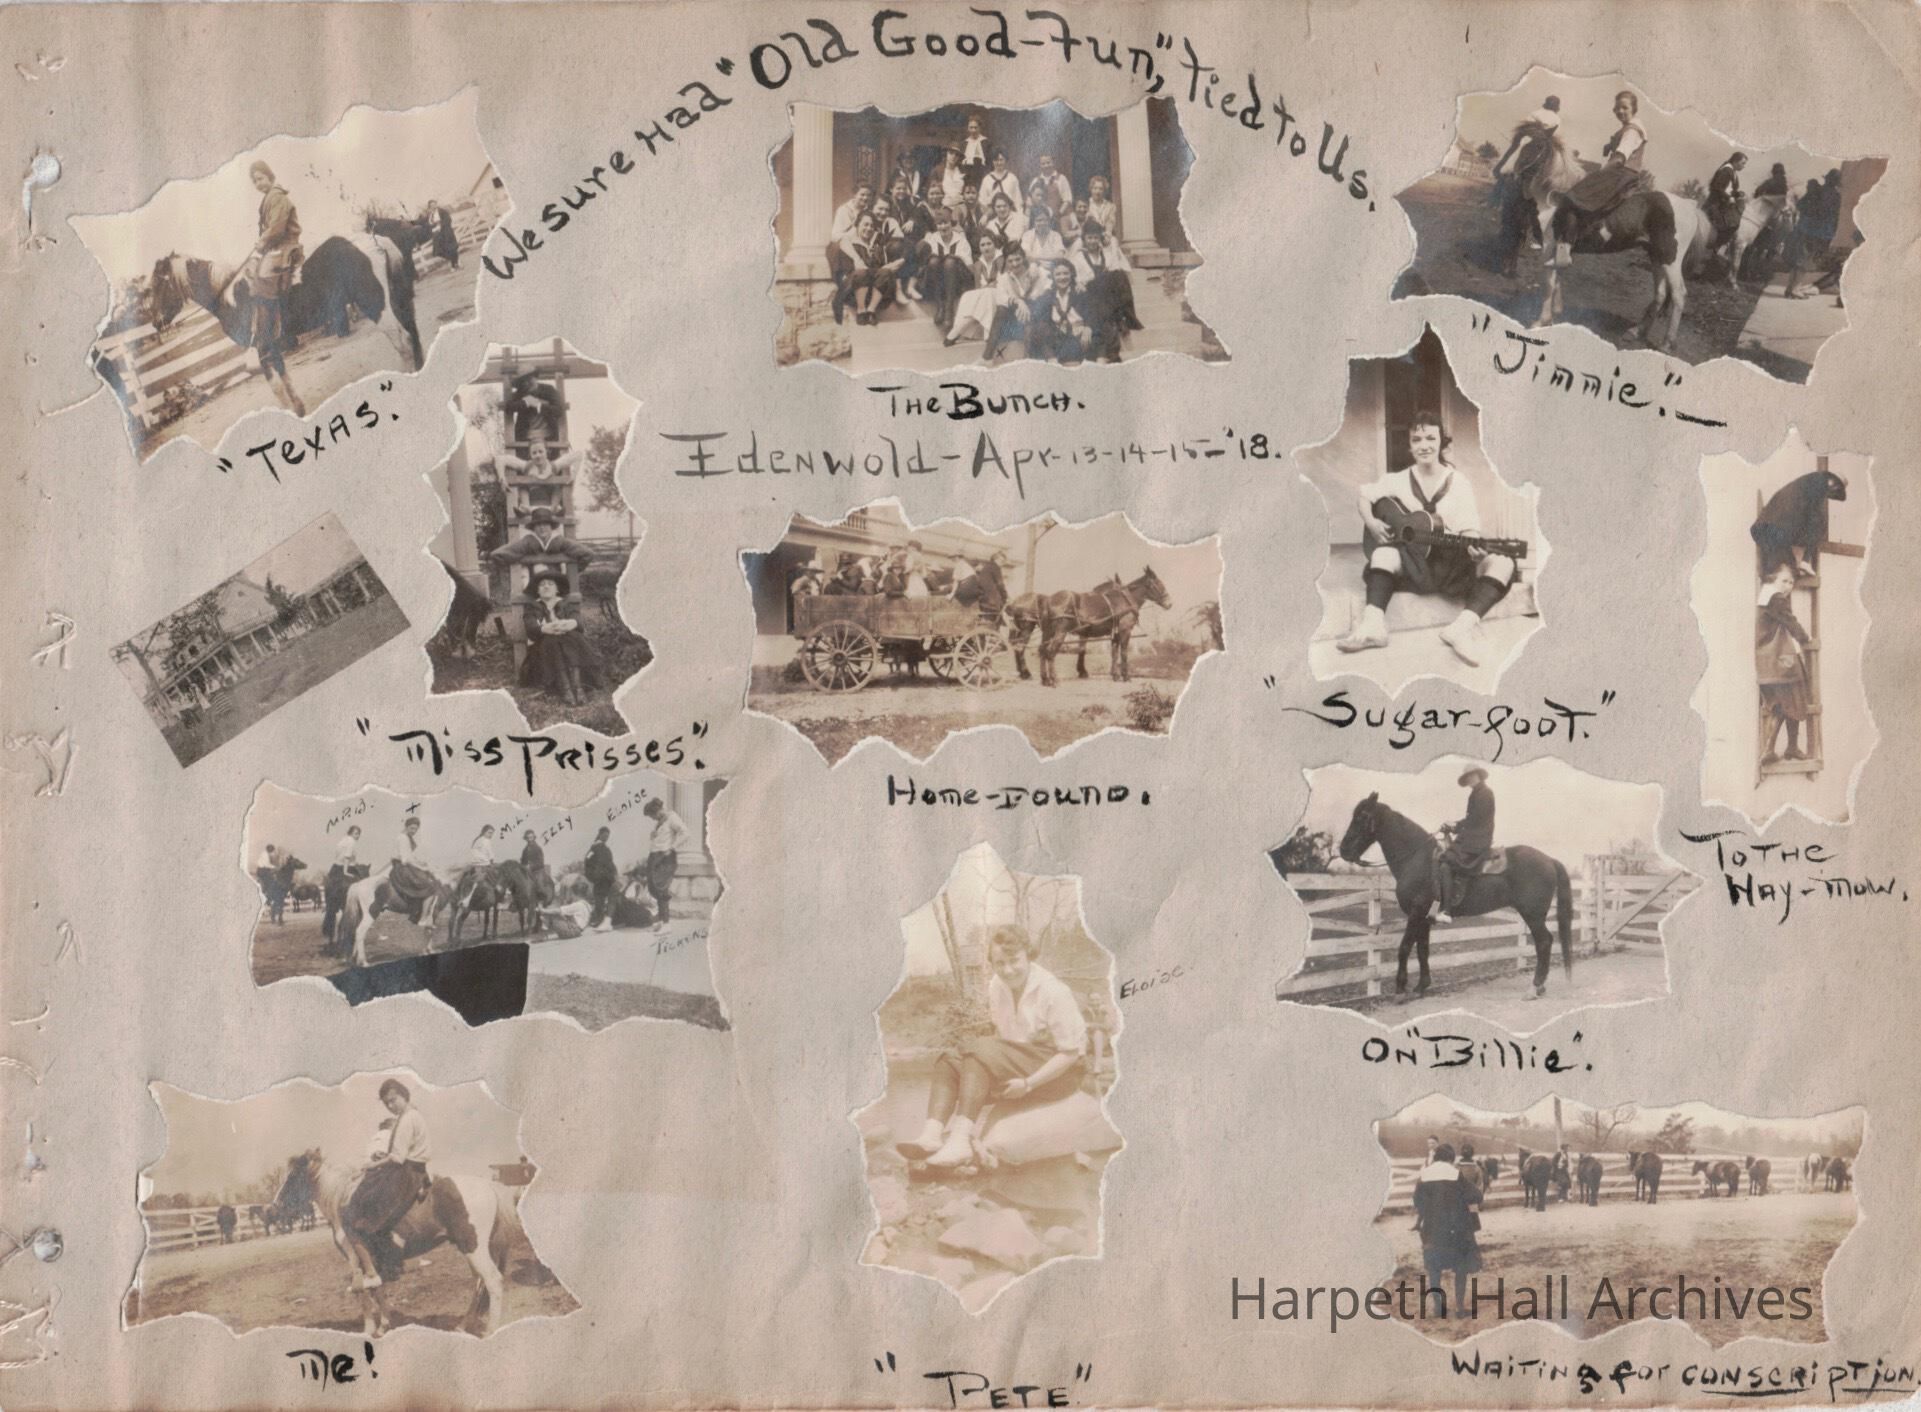 We sure Had "Old Good-Fun," tied to Us.
"Texas."
The Bunch.
"Jimmie."
Edenwold-Apr-13-14-15-'18.
"Miss Prisses."
Home-Bound.
"Sugar-foot."
To The
Hay-Mow.
+
M.L.
Izzy
Eloise
Pickens
Eloise.
On "Billie".
Me!
"Pete"
Waiting for conscription.
Harpeth Hall Archives